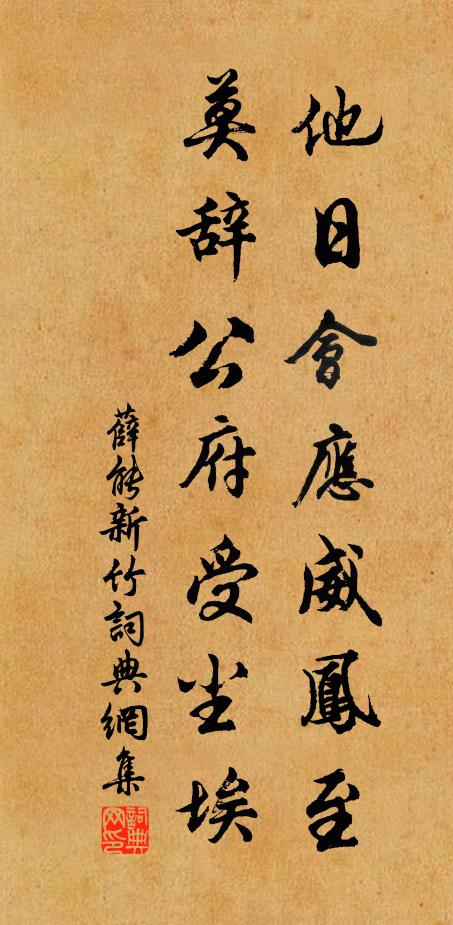 他日會應威鳳至
莫辞公府受尘埃
薛能新竹詞典網集
詞典网印